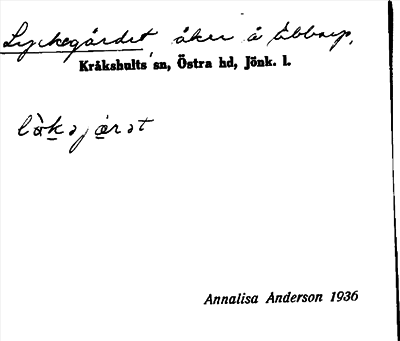 Lyckegärdet, åker å Ubbarp.
Kråkshults sn, Östra hd, Jönk. l.
lò̀kəjärət
Annalisa Anderson 1936